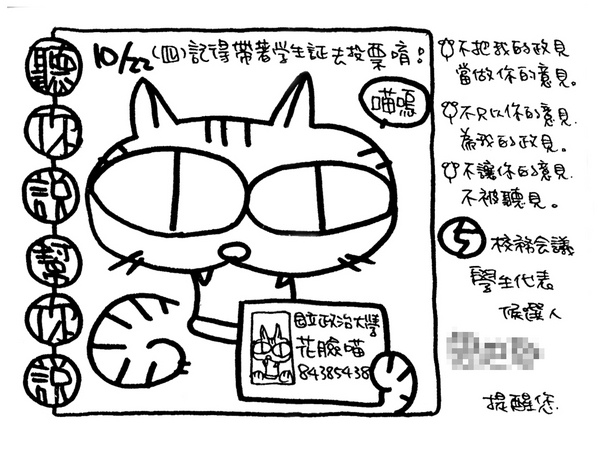 聽
你
說
幫
你
說
10/22(四)記得帶著學生証去投票唷!
喵嗚
國立政治大學
花臉喵
84385438
不把我的政見
當做你的意見。
不只以你的意見
為我的政見。
不讓你的意見
不被聽見。
5
校務会議
學生代表
候選人
提醒您